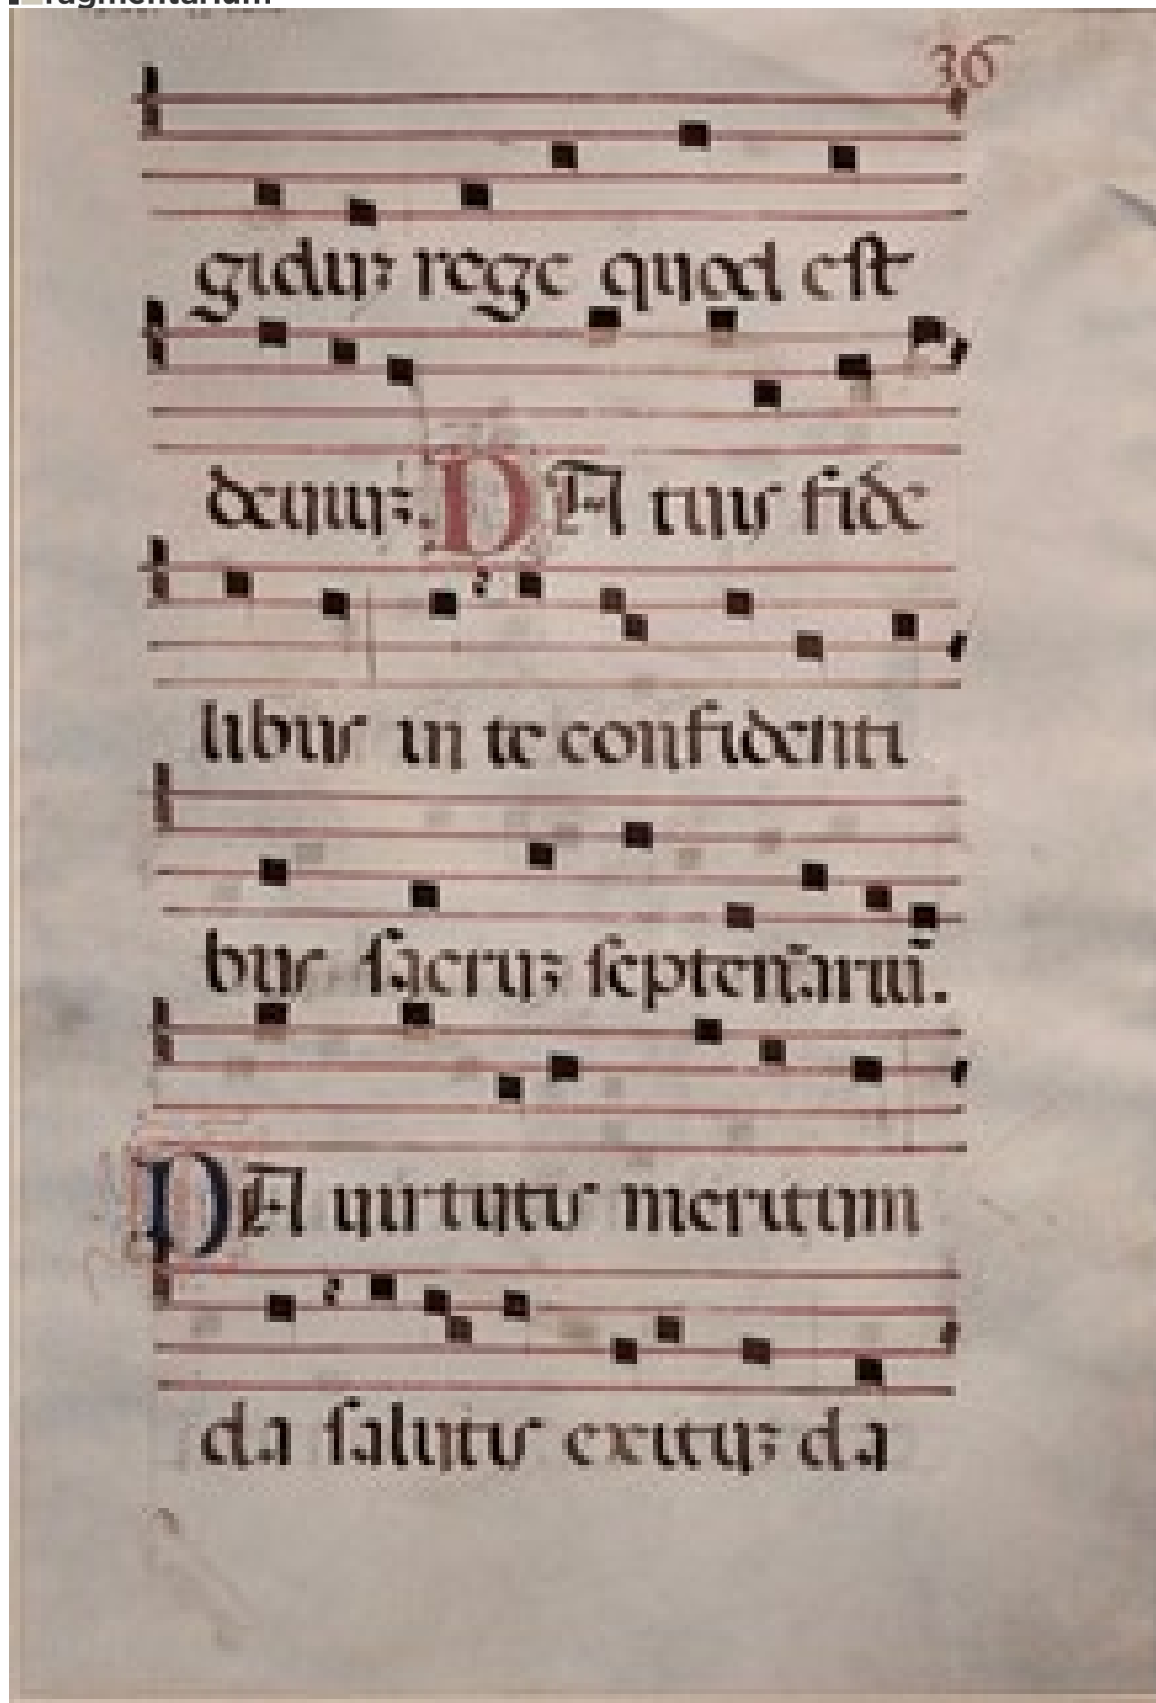 36
giduʒ rege quod est
deuiuʒ. DA tuis fide
libus in te confidenti
bus sacruʒ septenariū.
DA uirtutis meritum
da salutis exituʒ da